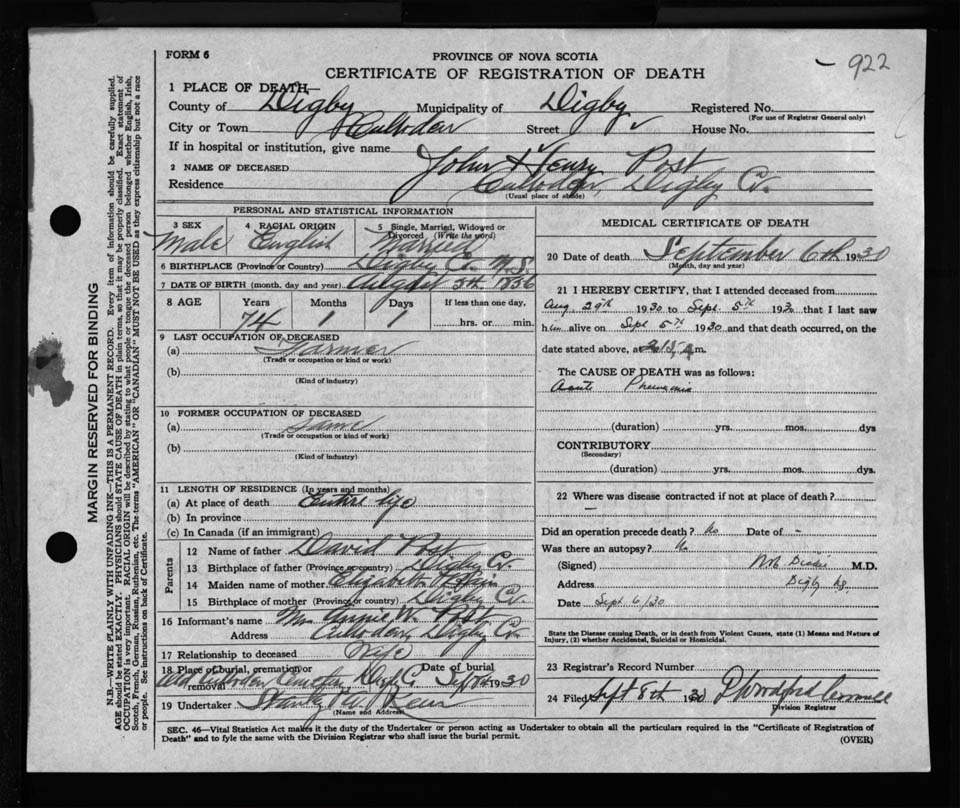 922
FORM 6
PROVINCE OF NOVA SCOTIA
CERTIFICATE OF REGISTRATION OF DEATH
1 PLACE OF DEATH—
County of Digby Municipality of Digby Registered No.
(For use of Registrar General only)
City or Town Culloden Street House No.
If in hospital or institution, give name
2 NAME OF DECEASED John Henry Post
Residence Culloden, Digby Co.
(Usual place of abode)
PERSONAL AND STATISTICAL INFORMATION
3 SEX 4 RACIAL ORIGIN 5 Single, Married, Widowed or
Divorced (Write the word)
Male English Married
6 BIRTHPLACE (Province or Country) Digby Co. N.S.
7 DATE OF BIRTH (month, day and year) August 5th 1856
8 AGE Years Months Days If less than one day,
74 1 1 hrs. or min.
9 LAST OCCUPATION OF DECEASED
(a) Farmer
(Trade or occupation or kind of work)
(b)
(Kind of industry)
10 FORMER OCCUPATION OF DECEASED
(a) Same
(Trade or occupation or kind of work)
(b)
(Kind of industry)
11 LENGTH OF RESIDENCE (In years and months)
(a) At place of death Entire life
(b) In province
(c) In Canada (if an immigrant)
Parents
12 Name of father David Post
13 Birthplace of father (Province or country) Digby Co.
14 Maiden name of mother Elizabeth
15 Birthplace of mother (Province or country) Digby Co.
16 Informant's name Mrs Annie W. Post
Address Culloden, Digby Co.
17 Relationship to deceased Wife
18 Place of burial, cremation or removal Old Culloden Cemetery Date of burial Sept 8th 1930
19 Undertaker Stanley W.
(Name and Address)
MEDICAL CERTIFICATE OF DEATH
20 Date of death September 6th 1930
(Month, day and year)
21 I HEREBY CERTIFY, that I attended deceased from
Aug 29th 1930 to Sept 5th 1930 that I last saw
him alive on Sept 5th 1930 and that death occurred, on the
date stated above, at m.
The CAUSE OF DEATH was as follows:
Acute Pneumonia
(duration) yrs. mos. dys
CONTRIBUTORY
(Secondary)
(duration) yrs. mos. dys.
22 Where was disease contracted if not at place of death?
–
Did an operation precede death? No Date of –
Was there an autopsy? No
(Signed) M.D.
Address Digby N.S.
Date Sept 6/30
State the Disease causing Death, or in death from Violent Causes, state (1) Means and Nature of
Injury, (2) whether Accidental, Suicidal or Homicidal.
23 Registrar's Record Number
24 Filed Sept 8th 1930
Division Registrar
SEC. 46—Vital Statistics Act makes it the duty of the Undertaker or person acting as Undertaker to obtain all the particulars required in the "Certificate of Registration of
Death" and to fyle the same with the Division Registrar who shall issue the burial permit.
(OVER)
MARGIN RESERVED FOR BINDING
N.B.—WRITE PLAINLY WITH UNFADING INK—THIS IS A PERMANENT RECORD. Every item of information should be carefully supplied.
AGE should be stated EXACTLY. PHYSICIANS should STATE CAUSE OF DEATH in plain terms, so that it may be properly classified. Exact statement of
OCCUPATION is very important. RACIAL ORIGIN will be described by stating to what people or tongue the deceased person belonged whether English, Irish,
Scotch, French, German, Russian, Ruthenian, etc. The terms "AMERICAN" OR "CANADIAN" MUST NOT BE USED as they express citizenship but not a race
or people. See instructions on back of Certificate.